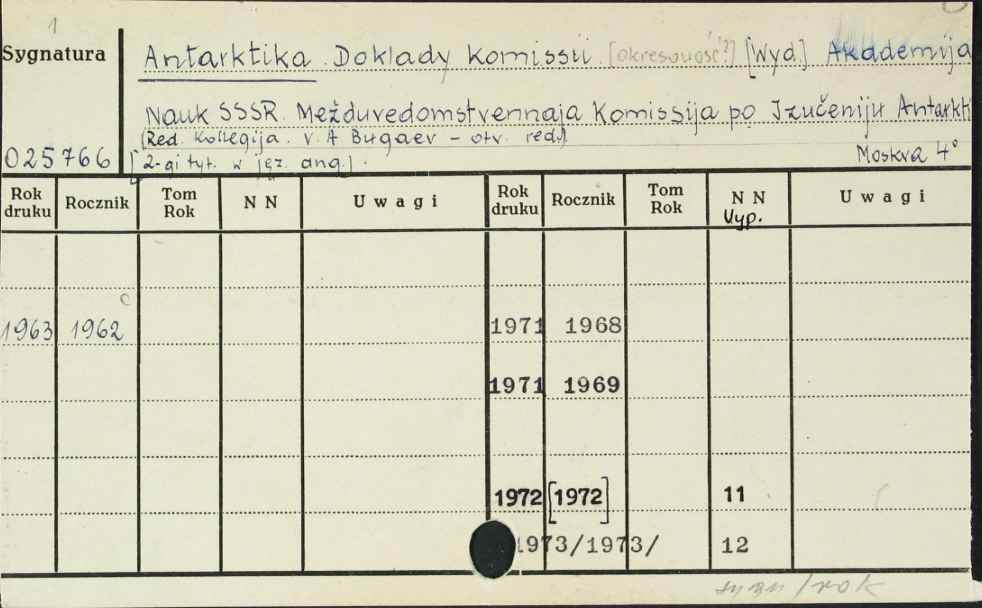 1
Sygnatura
Antarktika. Doklady Komissii. [okresowość?] [Wyd.] Akademija
Nauk SSSR. Mežduvedomstvennaja Komissija po Izučeniju Antarkti
(Red. Kollegija. V. A Bugaev – otv. red.)
025766 [2-gi tyt. w jęz. ang.]. Moskva 4°
Rok druku Rocznik Tom Rok N N Uwagi Rok druku Rocznik Tom Rok N N Vyp. Uwagi
1963 1962 1971 1968
1971 1969
1972 [1972] 11
1973/1973/ 12
/rok